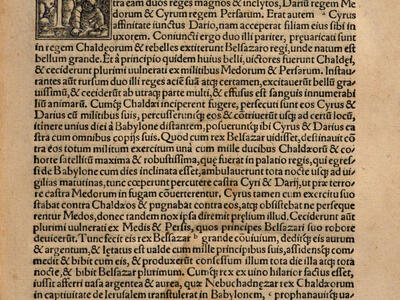 tra eam duos reges magnos & inclytos, Dariũ regem Me
dorum & Cyrum regem Persarum. Erat autem ᵃ Cyrus
affinitate iunctus Dario, nam acceperat filiam eius sibi in
uxorem. Coniuncti ergo duo illi pariter, preuaricati sunt
in regem Chaldęorum & rebelles extiterunt Belsazaro regi, unde natum est
bellum grande. Et à principio quidem huius belli, uictores fuerunt Chaldęi,
& ceciderunt plurimi uulnerati ex militibus Medorum & Persarum. Instau-
rantes aũt rursum duo illi reges acië suã atq; certamen, excitauerũt bellũ gra-
uissimũ, & ceciderũt ab utraq; parte multi, & effusus est sanguis innumerabi
liũ animarũ. Cumq́; Chaldæi inciperent fugere, persecuti sunt eos Cyrus &
Darius cũ militibus suis, percusserũntq; eos & cõtriuerũt usq; ad certũ locũ,
itinere unius diei à Babylone distantem, posueruntq; ibi Cyrus & Darius ca
stra cum omnibus copijs suis. Quod cum rex Belsazar uidisset, destinauit cõ
tra eos totum militum exercitum unà cum mille ducibus Chaldæorũ & co
horte satellitũ maxima & robustissima, quę fuerat in palatio regis, qui egres
si de Babylone cum dies inclinata esset, ambulauerunt tota nocte usq; ad ui-
gilias matutinas, tunc cœperunt percutere castra Cyri & Darij, ut præ terro-
re castra Medorum in fugam cõuerterentur. Cyrus tamen cum exercitu suo
stabat contra Chaldæos & pugnabat contra eos, atq; obsistebat ne perseque
rentur Medos, donec tandem nox ipsa diremit prelium illud. Ceciderunt aũt
plurimi uulnerati ex Medis & Persis, quos princeps Belsazari suo robore
deuicerunt. Tunc fecit eis rex Belsazar ᵇ grande cõuiuium, deditq; eis aurum
& argentum, & lętatus est ualde cum mille principibus suis, assidensq; com-
medit & bibit cum eis, & produxerũt consessum illum tota die illa atq; tota
nocte, & bibit Belsazar plurimum. Cumq́; rex ex uino hilarior factus esset,
iussit afferri uasa argentea & aurea, quæ Nebuchadnęzar rex Chaldæorum
in captiuitate de Ierusalem transtulerat in Babylonem, ᶜ prophanauitq; ea